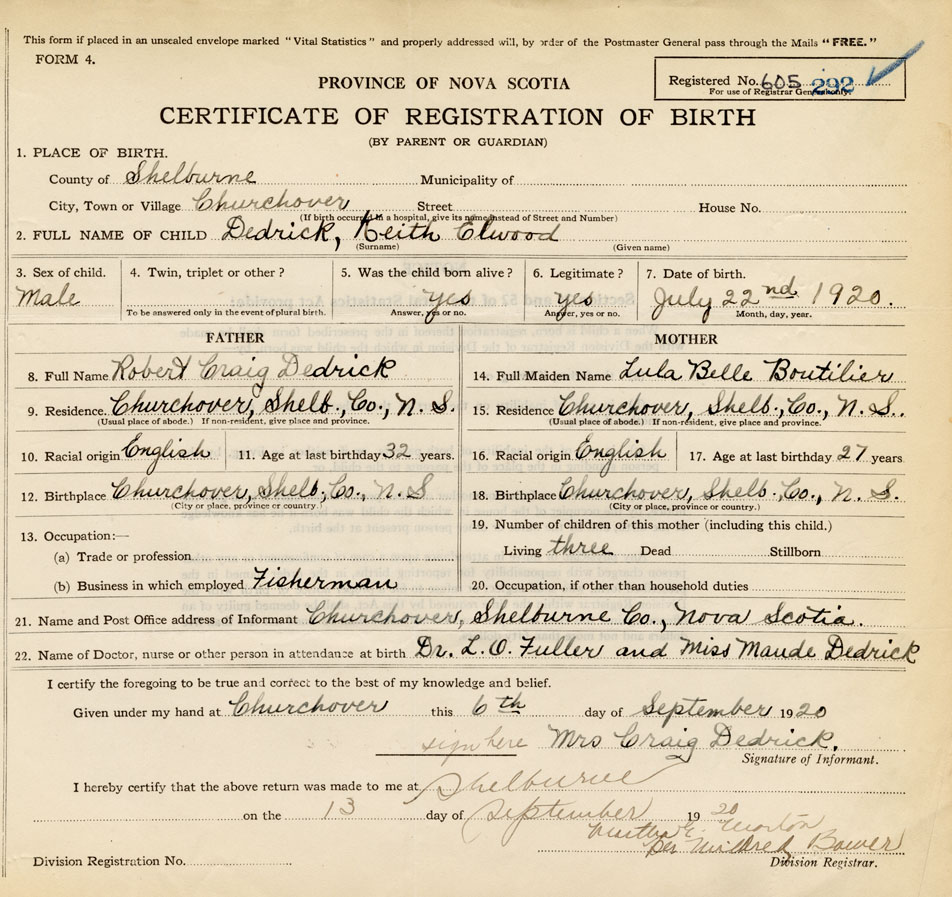 This form if placed in an unsealed envelope marked "Vital Statistics" and properly addressed will, by order of the Postmaster General pass through the Mails "FREE."
FORM 4.
PROVINCE OF NOVA SCOTIA
Registered No. 605 292
For use of Registrar General only.
CERTIFICATE OF REGISTRATION OF BIRTH
(BY PARENT OR GUARDIAN)
1. PLACE OF BIRTH.
County of Shelburne Municipality of
City, Town or Village Churchover Street House No.
(If birth occurred in a hospital, give its name instead of Street and Number)
2. FULL NAME OF CHILD Dedrick, Keith Elwood
(Surname) (Given name)
3. Sex of child. 4. Twin, triplet or other? 5. Was the child born alive? 6. Legitimate? 7. Date of birth.
Male yes yes July 22nd 1920.
To be answered only in the event of plural birth. Answer, yes or no. Answer, yes or no. Month, day, year.
FATHER MOTHER
8. Full Name Robert Craig Dedrick 14. Full Maiden Name Lula Belle Boutilier
9. Residence. Churchover, Shelb., Co., N. S. 15. Residence Churchover, Shelb., Co., N. S.
(Usual place of abode.) If non-resident, give place and province. (Usual place of abode.) If non-resident, give place and province.
10. Racial origin English 11. Age at last birthday 32 years. 16. Racial origin English 17. Age at last birthday 27 years
12. Birthplace Churchover, Shelb., Co., N. S 18. Birthplace Churchover, Shelb., Co., N. S.
(City or place, province or country.) (City or place, province or country.)
13. Occupation:— 19. Number of children of this mother (including this child.)
(a) Trade or profession Living three Dead Stillborn
(b) Business in which employed Fisherman 20. Occupation, if other than household duties
21. Name and Post Office address of Informant Churchover, Shelburne Co., Nova Scotia.
22. Name of Doctor, nurse or other person in attendance at birth Dr. L. O. Fuller and Miss Maude Dedrick
I certify the foregoing to be true and correct to the best of my knowledge and belief.
Given under my hand at Churchover this 6th day of September 1920
sign here Mrs Craig Dedrick.
Signature of Informant.
I hereby certify that the above return was made to me at Shelburne
on the 13 day of September 19 20
Martha E. Morton
Per Mildred Bower
Division Registration No. Division Registrar.